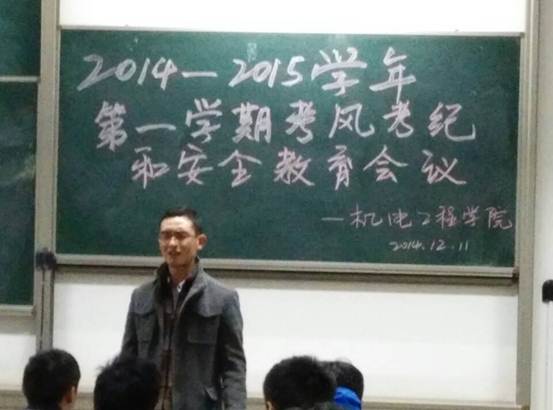 2014—2015学年
第一学期考风考纪
和安全教育会议
—机电工程学院
2014.12.11